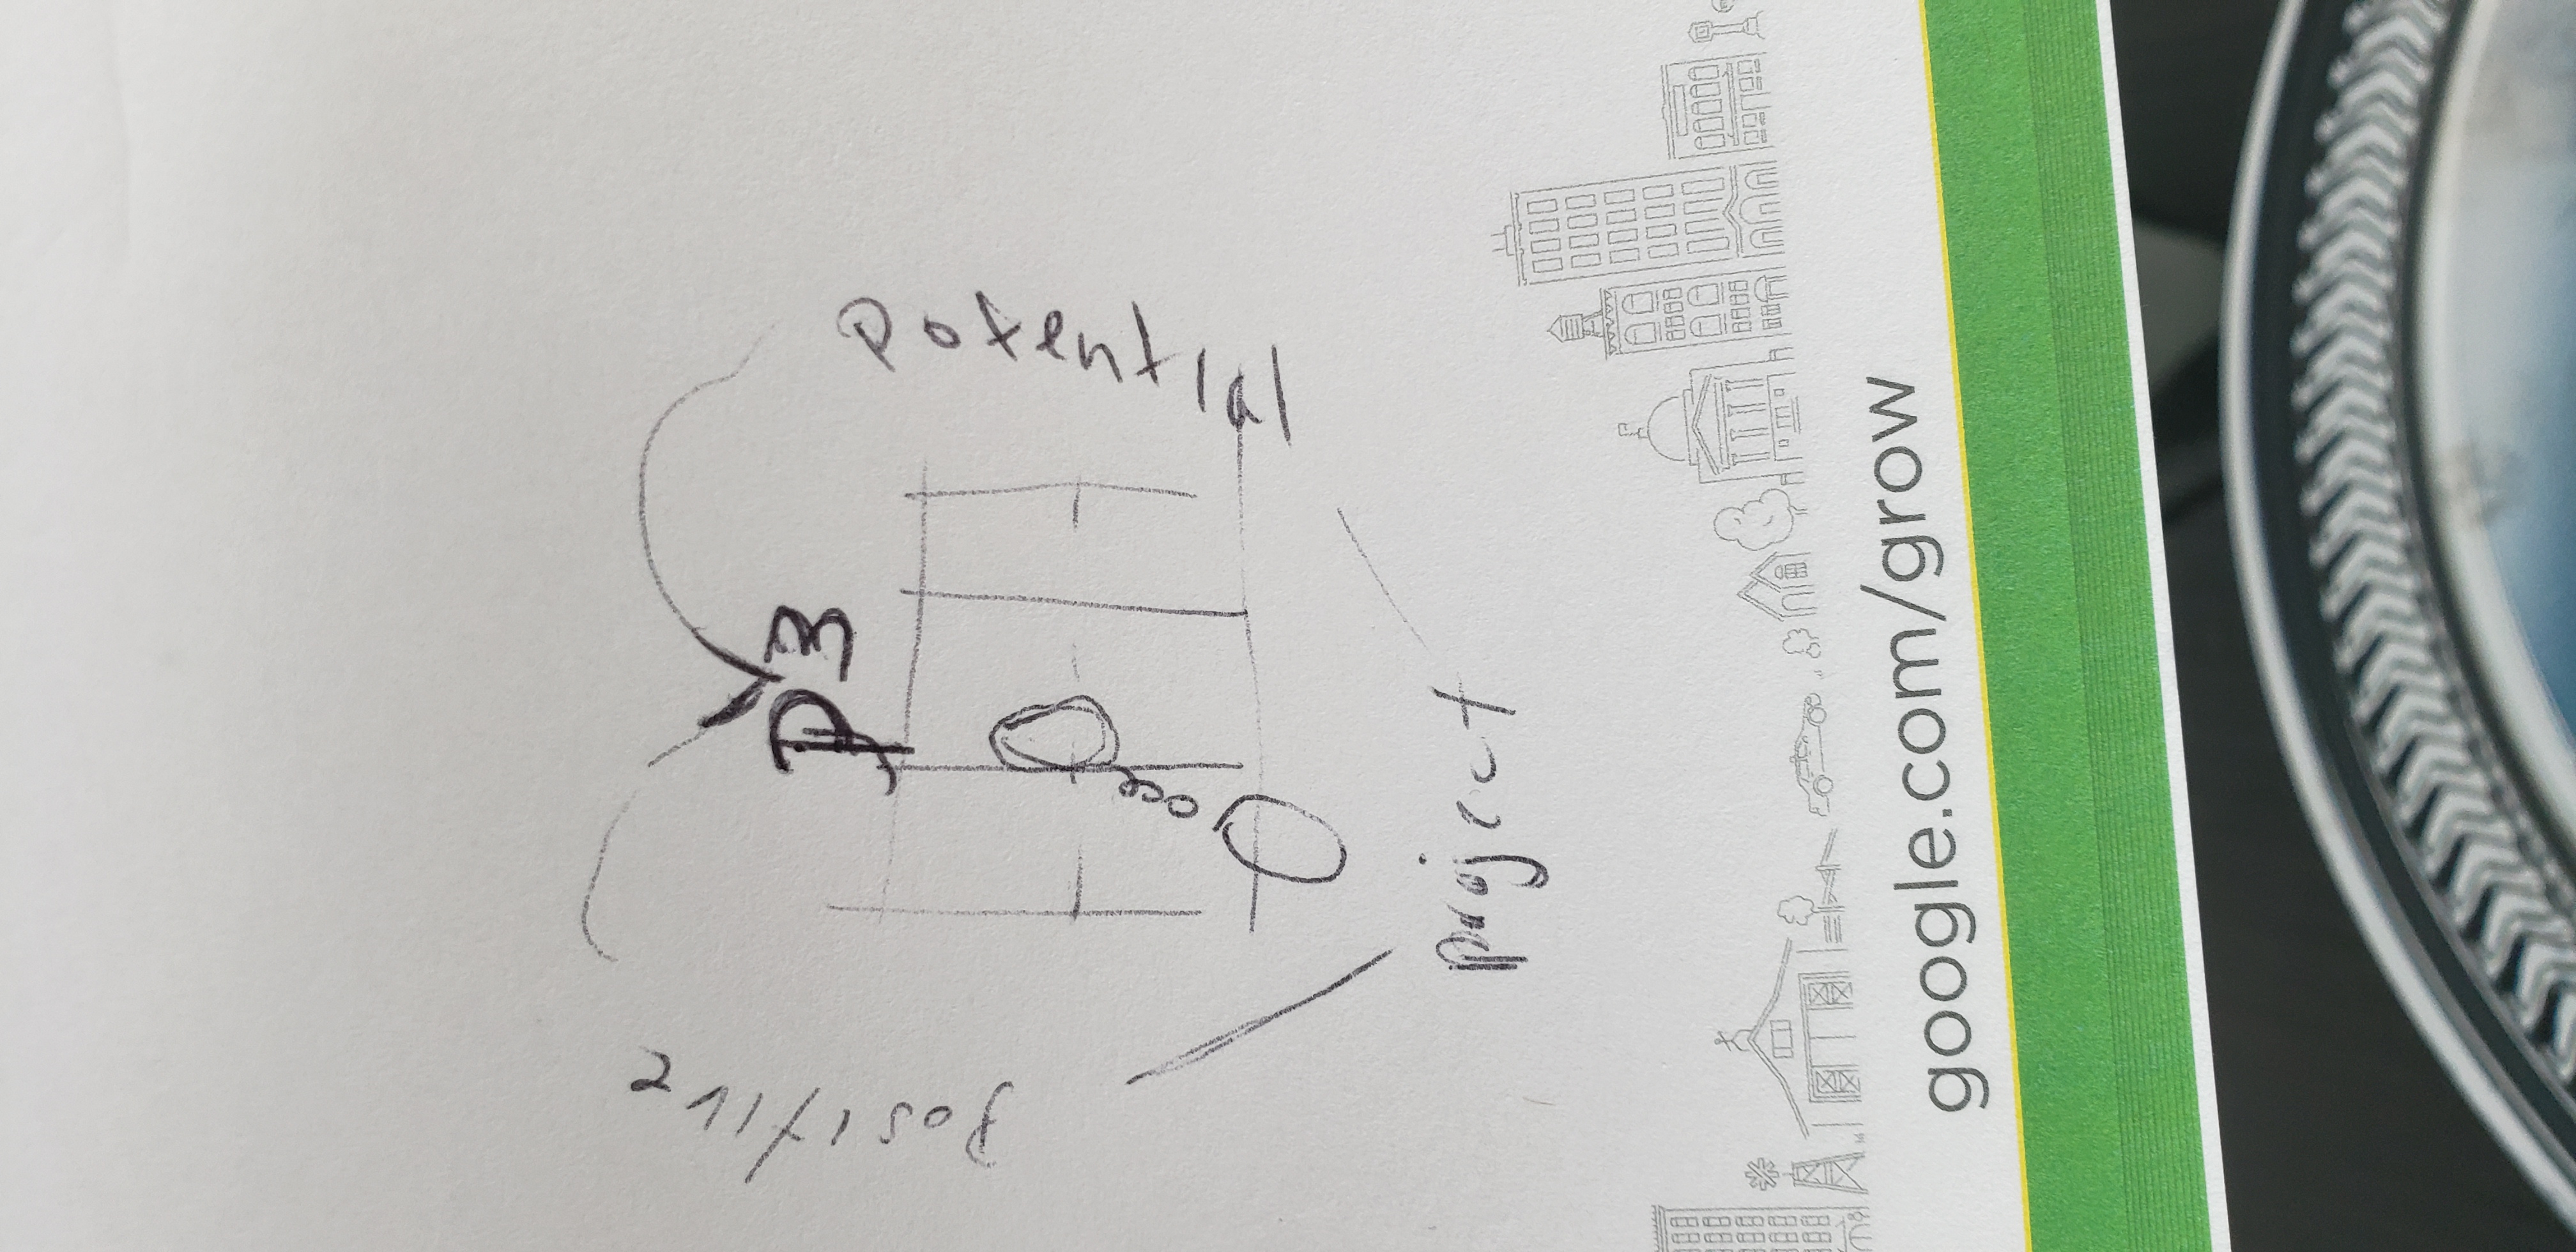 positive
P3
Potential
Project
google.com/grow